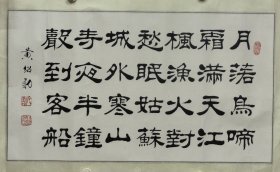 月落烏啼
霜滿天江
楓漁火對
愁眠姑蘇
城外寒山
寺夜半鐘
聲到客船
黄